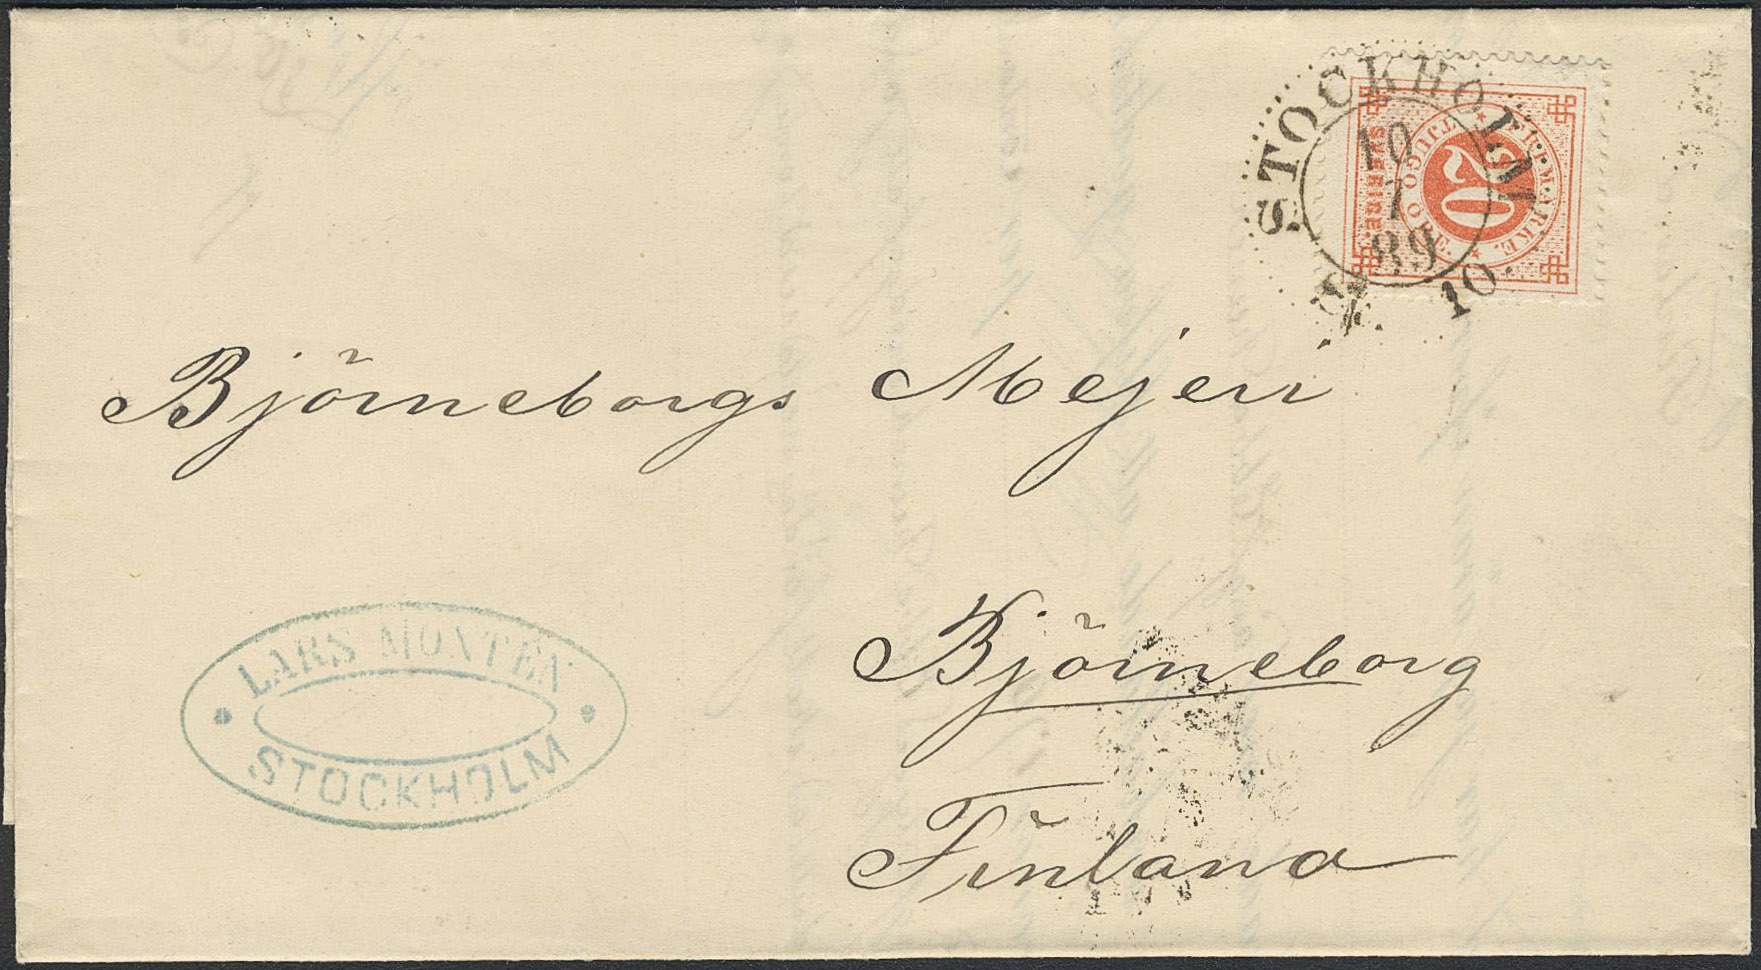 STOCKHOLM
10
7
89
10.
FRIMARKE.
TJUGO ÖRE
20
SVERIGE.
Björneborgs Mejeri
Björneborg
Finland
LARS MONTEN
STOCKHOLM